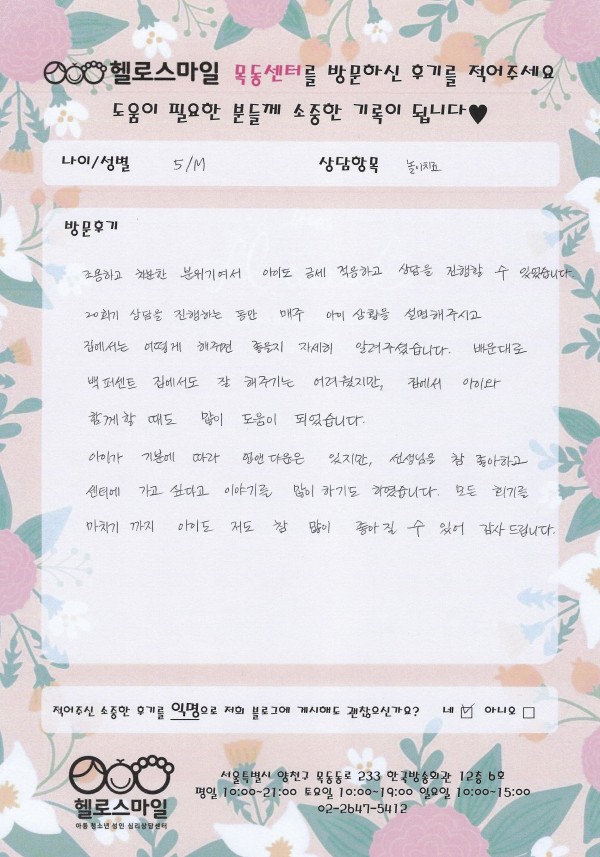 헬로스마일 목동센터를 방문하신 후기를 적어주세요
도움이 필요한 분들께 소중한 기록이 됩니다♥
나이/성별 5/M 상담항목 놀이치료
방문후기
조용하고 차분한 분위기여서 아이도 금세 적응하고 상담을 진행할 수 있었습니다
20회기 상담을 진행하는 동안 매주 아이 상황을 설명해주시고
집에서는 어떻게 해주면 좋을지 자세히 알려주셨습니다. 배운대로
백퍼센트 집에서도 잘 해주기는 어려웠지만, 집에서 아이와
함께할 때도 많이 도움이 되었습니다.
아이가 기분에 따라 업앤다운은 있지만, 선생님을 참 좋아하고
센터에 가고 싶다고 이야기를 많이 하기도 하였습니다. 모든 회기를
마치기 까지 아이도 저도 참 많이 좋아질 수 있어 감사드립니다.
적어주신 소중한 후기를 익명으로 저희 블로그에 게시해도 괜찮으신가요? 네 ☑ 아니오 □
헬로스마일
아동 청소년 성인 심리상담센터
서울특별시 양천구 목동동로 233 한국방송회관 12층 6호
평일 10:00~21:00 토요일 10:00~19:00 일요일 10:00~15:00
02-2647-5412